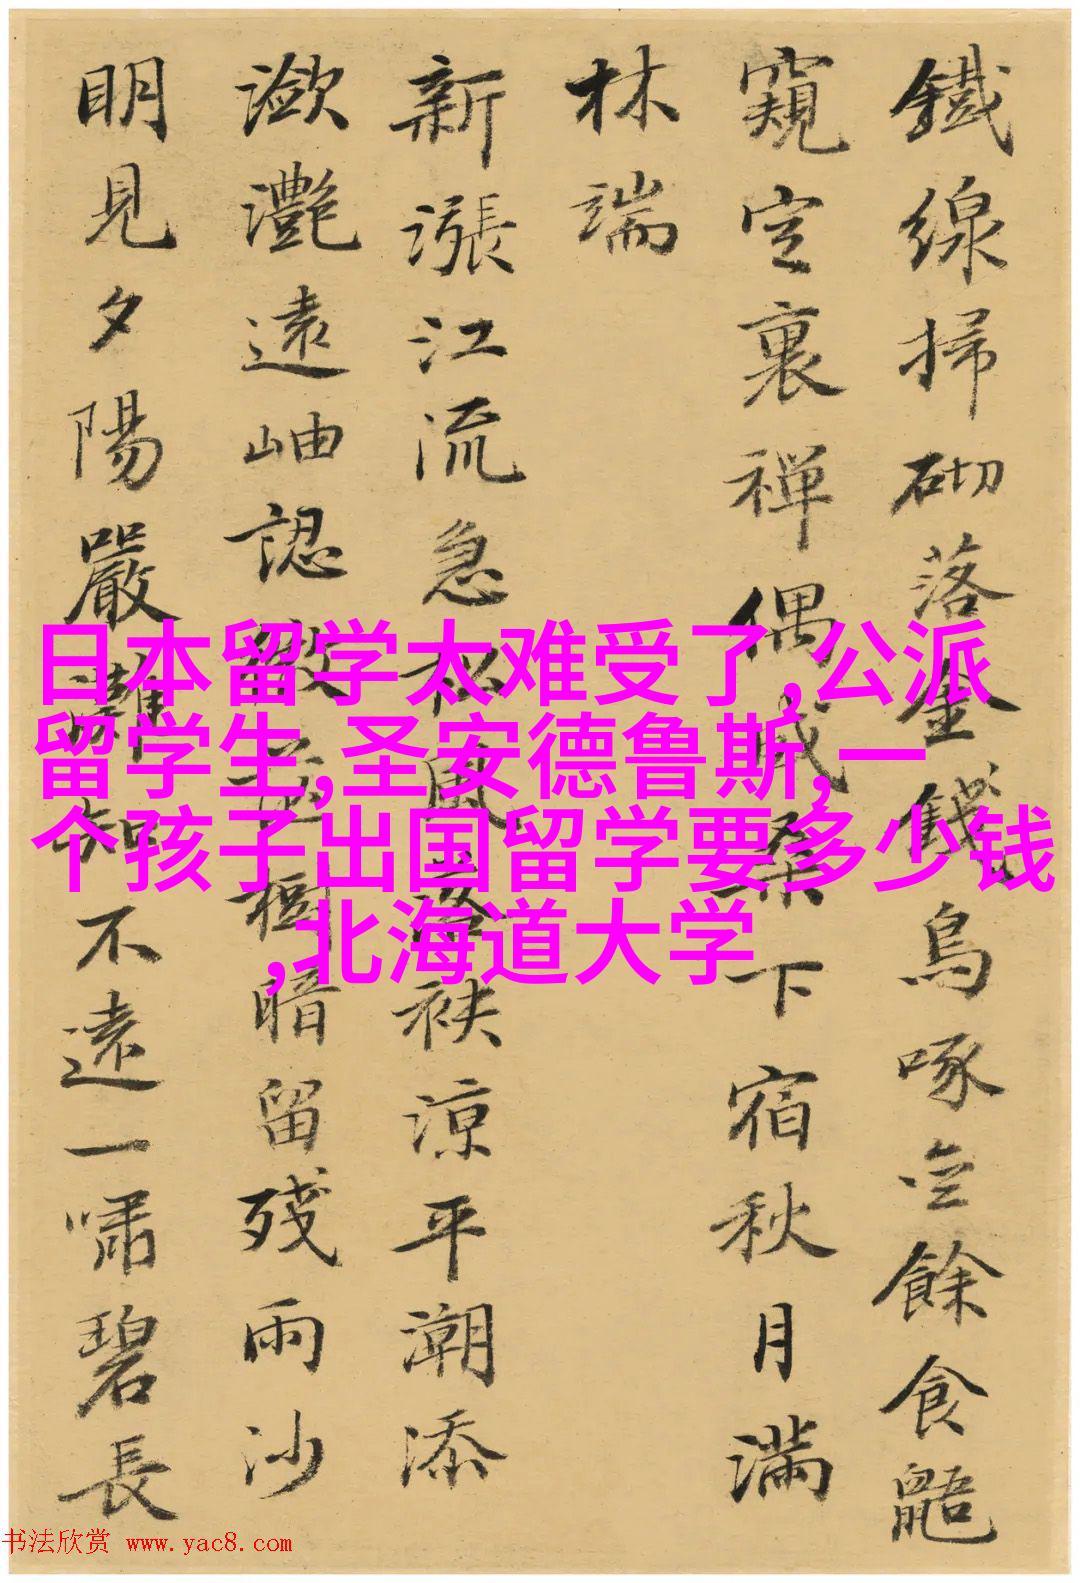 鐵線掃砌落金錢烏啄空餘食鼯
窺定裏禪偶戒桑下宿秋月滿
林端
新漲江流急松風落袂涼平潮添
瀲灩遠岫認微茫樹暗留殘雨沙
明見夕陽嚴灘知不遠一嘯碧長
日本留学太难受了,公派
留学生,圣安德鲁斯,一
个孩子出国留学要多少钱
,北海道大学
书法欣赏 www.yac8.com